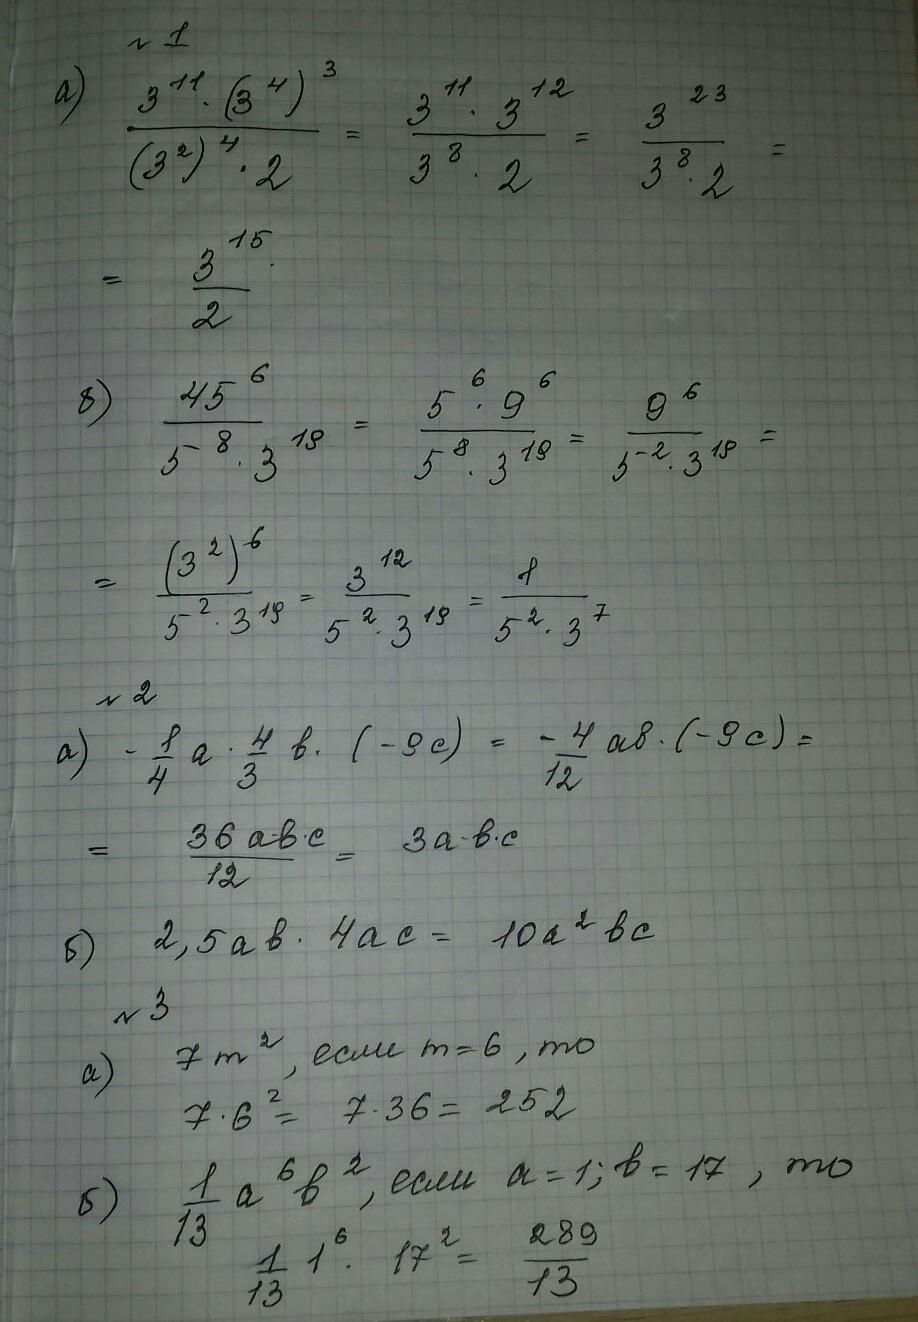 № 1
а) (3^11 · (3^4)^3)/((3^2)^4 · 2) = (3^11 · 3^12)/(3^8 · 2) = 3^23/(3^8 · 2) =
= 3^15/2.
в) 45^6/(5^-8 · 3^19) = (5^6 · 9^6)/(5^8 · 3^19) = 9^6/(5^-2 · 3^19) =
= (3^2)^6/(5^2 · 3^19) = 3^12/(5^2 · 3^19) = 1/(5^2 · 3^7)
№ 2
а) - 1/4 a · 4/3 b · (-9c) = -4/12 ab · (-9c) =
= (36 a·b·c)/12 = 3a·b·c
б) 2,5ab · 4ac = 10a^2 bc
№ 3
а) 7m^2, если m=6, то
7·6^2 = 7·36 = 252
б) 1/13 a^6 b^2, если a=1; b=17, то
1/13 1^6 · 17^2 = 289/13